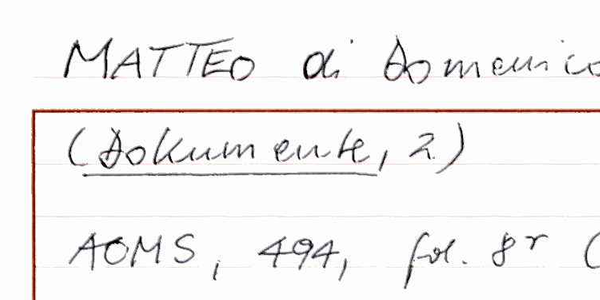 MATTEO di Domenico
(Dokumente, 2)
AOMS, 494, fol. 8r (